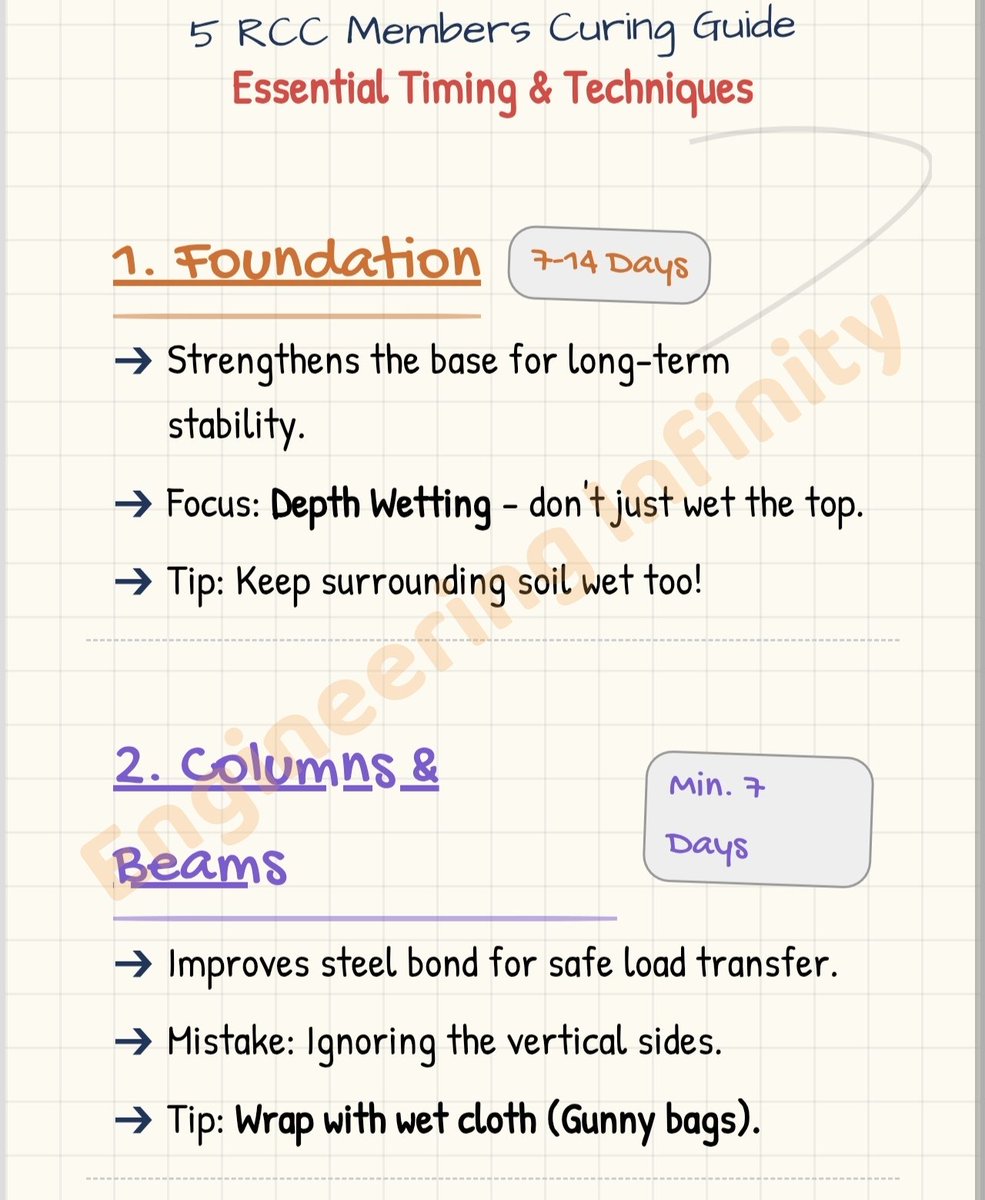 5 RCC Members Curing Guide
Essential Timing & Techniques
1. Foundation
7-14 Days
→ Strengthens the base for long-term
stability.
→ Focus: Depth Wetting – don't just wet the top.
→ Tip: Keep surrounding soil wet too!
2. Columns &
Beams
Min. 7
Days
→ Improves steel bond for safe load transfer.
→ Mistake: Ignoring the vertical sides.
→ Tip: Wrap with wet cloth (Gunny bags).
Engineering Infinity